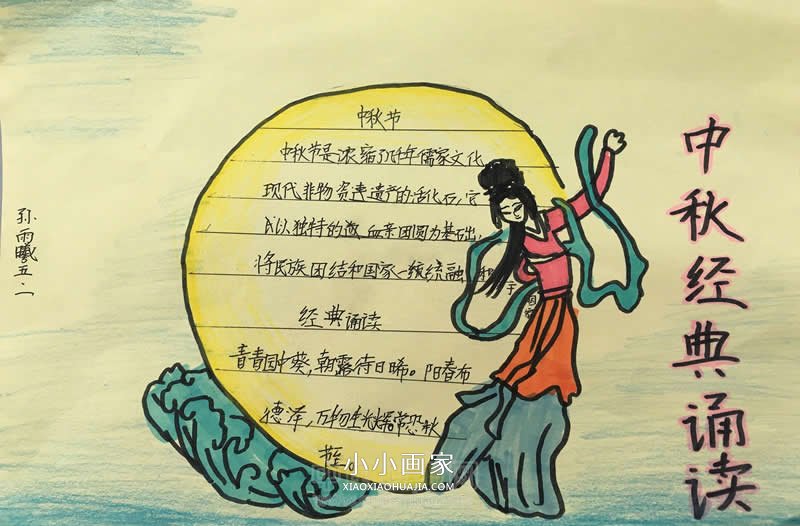 中秋节
中秋节是浓缩了几千年儒家文化
现代非物资遗产的活化石,它
以独特的 血亲团圆为基础,
将民族团结和国家一统统融
经典诵读
青青园中葵,朝露待日晞。阳春布
德泽,万物生光辉常恐秋
节至
中秋经典诵读
孙雨曦五.二
小小画家
XIAOXIAOHUAJIA.COM